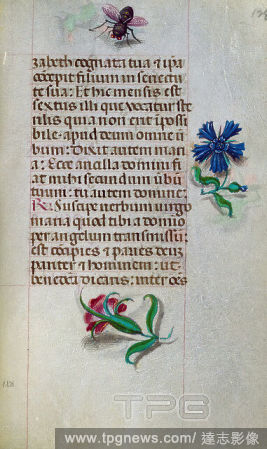 zabeth cognata tua & ip̄a
cōcepit filium in senectu
te sua: Et hic mensis est
sextus illi que vocatur ste
rilis quia non erit īpossi
bile apud deum omne v̄
bum: Dixit autem mari
a: Ecce ancilla domini fi
at michi secundum v̄bū
tuum: tu autem domine
R: Suscipe verbum virgo
maria quod tibi a domīo
per angelum transmissū:
est cōcipies & paries deūz
pariter & hominem: ut
benedicta dicaris: inter oēs
TPG
www.tpgnews.com / 達志影像